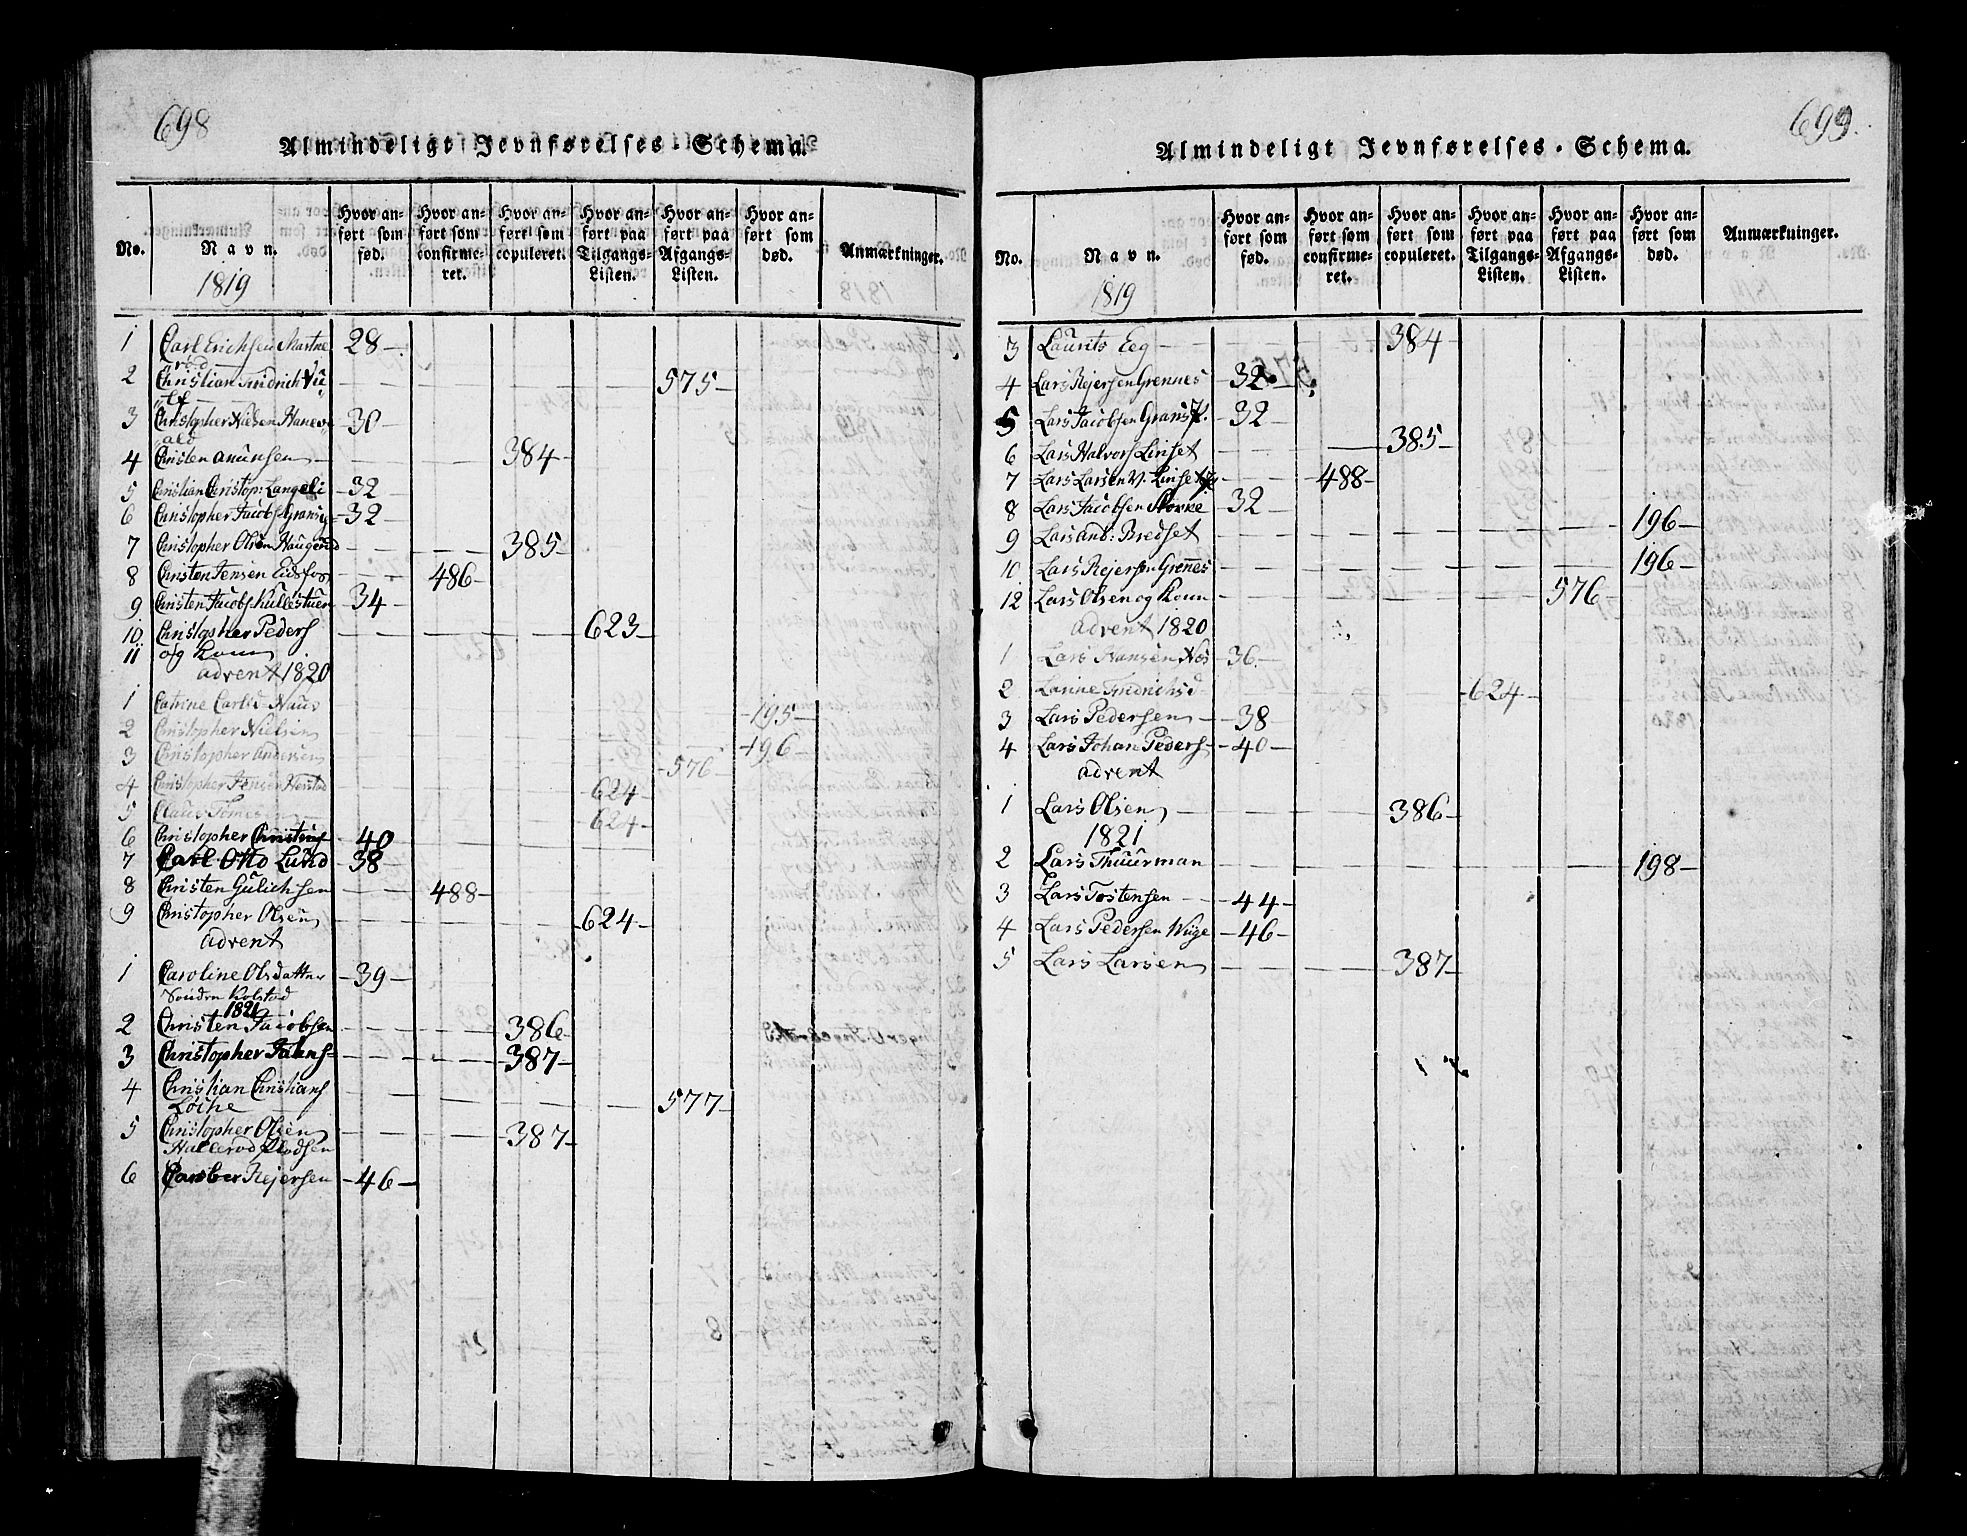 698
Almindeligt Jevnførelses-Schema.
No. Navn. Hvor anført som fød. Hvor anført som confirmeret. Hvor anført som copuleret. Hvor anført paa Tilgangs-Listen. Hvor anført paa Afgangs-Listen. Hvor anført som død. Anmærkninger.
1819
1 Carl Erichsen 28
2 Christian Fridrich 575
3 Christopher Nielsen 30
4 Christen Amunsen 384
5 Christian Christop: Langeli 32
6 Christopher Jacobs 32
7 Christopher Olsen Haugerud 385
8 Christen Jensen Eidsfos 486
9 Christen Jacobs. 34
10 Christopher Peders 623
11 og Kone
advent 1820
1 Catrine Carlsd 195
2 Christopher Nielsen 196
3 Christopher Andersen 576
4 Christopher Jensen 624
5 Claus 624
6 Christopher Christens 40
7 Carl Otto Lund 38
8 Christen Gulichsen 488
9 Christopher Olsen 624
advent
1 Caroline Olsdatter 39
Kolstad
1821
2 Christen Jacobsen 386
3 Christopher Johns 387
4 Christian Christians 577
5 Christopher Olsen 387
6 Rejersen 46
699.
Almindeligt Jevnførelses-Schema.
No. Navn. Hvor anført som fød. Hvor anført som confirmeret. Hvor anført som copuleret. Hvor anført paa Tilgangs-Listen. Hvor anført paa Afgangs-Listen. Hvor anført som død. Anmærkninger.
1819
3 Laurits Eeg 384
4 Lars Rejersen Grennes 32
5 Lars Jacobsen 32
6 Lars Halvors Linset 385
7 Lars Larsen 488
8 Lars Jacobsen 32
9 Lars And: Bredset 196
10 Lars Rejersen Grenes 196
12 Lars Olsen og Kone 576
advent 1820
1 Lars Hansen 36
2 Larine Fridrichsd 624
3 Lars Pedersen 38
4 Lars Johan Peders 40
advent
1 Lars Olsen 386
1821
2 Lars Thuurman 198
3 Lars Tostensen 44
4 Lars Pedersen Wiige 46
5 Lars Larsen 387